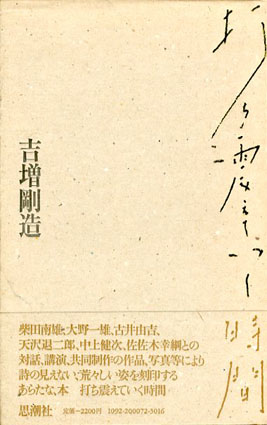 打ち震えていく時間
吉増剛造
柴田南雄、大野一雄、古井由吉、
天沢退二郎、中上健次、佐佐木幸綱との
対話、講演、共同制作の作品、写真等により
詩の見えない、荒々しい姿を刻印する
あらたな、本 打ち震えていく時間
思潮社 定価—2200円 1092-200072-3016